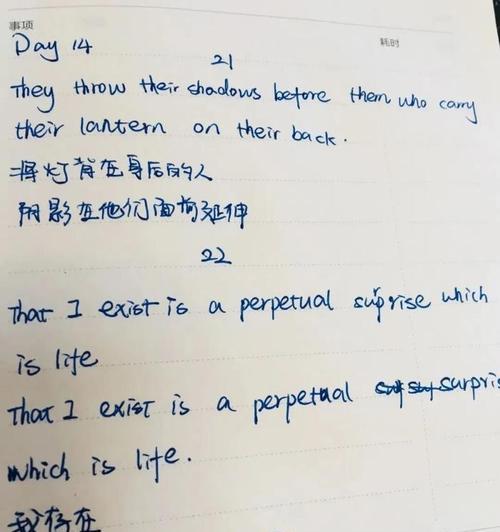 事项
耗时
Day 14
21
They throw their shadows before them who carry
their lantern on their back.
将灯背在身后的人
阴影在他们面前延伸
22
that I exist is a perpetual suprise which
is life
That I exist is a perpetual surpris
which is life.
我存在